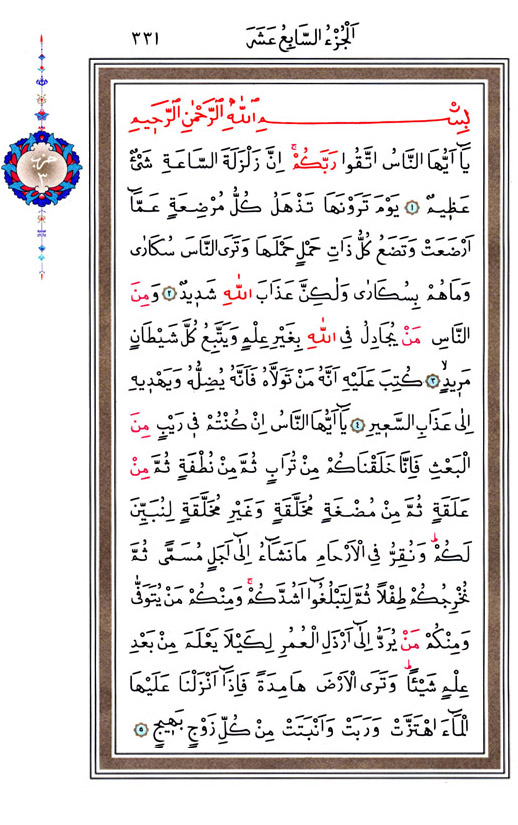 اَلْجُزْءُ السَّابِعُ عَشَرَ ٣٣١
حزب ٣
بِسْــــــــمِ اللّٰهِ الرَّحْمٰنِ الرَّحٖيمِ
يَٓا اَيُّهَا النَّاسُ اتَّقُوا رَبَّكُمْۚ اِنَّ زَلْزَلَةَ السَّاعَةِ شَيْءٌ
عَظٖيمٌ ١ يَوْمَ تَرَوْنَهَا تَذْهَلُ كُلُّ مُرْضِعَةٍ عَمَّٓا
اَرْضَعَتْ وَتَضَعُ كُلُّ ذَاتِ حَمْلٍ حَمْلَهَا وَتَرَى النَّاسَ سُكَارٰى
وَمَا هُمْ بِسُكَارٰى وَلٰكِنَّ عَذَابَ اللّٰهِ شَدٖيدٌ ٢ وَمِنَ
النَّاسِ مَنْ يُجَادِلُ فِي اللّٰهِ بِغَيْرِ عِلْمٍ وَيَتَّبِعُ كُلَّ شَيْطَانٍ
مَرٖيدٍۙ ٣ كُتِبَ عَلَيْهِ اَنَّهُ مَنْ تَوَلَّاهُ فَاَنَّهُ يُضِلُّهُ وَيَهْدٖيهِ
اِلٰى عَذَابِ السَّعٖيرِ ٤ يَٓا اَيُّهَا النَّاسُ اِنْ كُنْتُمْ فٖي رَيْبٍ مِنَ
الْبَعْثِ فَاِنَّا خَلَقْنَاكُمْ مِنْ تُرَابٍ ثُمَّ مِنْ نُطْفَةٍ ثُمَّ مِنْ
عَلَقَةٍ ثُمَّ مِنْ مُضْغَةٍ مُخَلَّقَةٍ وَغَيْرِ مُخَلَّقَةٍ لِنُبَيِّنَ
لَكُمْؕ وَنُقِرُّ فِي الْاَرْحَامِ مَا نَشَٓاءُ اِلٰٓى اَجَلٍ مُسَمًّى ثُمَّ
نُخْرِجُكُمْ طِفْلاً ثُمَّ لِتَبْلُغُٓوا اَشُدَّكُمْۚ وَمِنْكُمْ مَنْ يُتَوَفّٰى
وَمِنْكُمْ مَنْ يُرَدُّ اِلٰٓى اَرْذَلِ الْعُمُرِ لِكَيْلَا يَعْلَمَ مِنْ بَعْدِ
عِلْمٍ شَيْـٔاًؕ وَتَرَى الْاَرْضَ هَامِدَةً فَاِذَٓا اَنْزَلْنَا عَلَيْهَا
الْمَٓاءَ اهْتَزَّتْ وَرَبَتْ وَاَنْبَتَتْ مِنْ كُلِّ زَوْجٍ بَهٖيجٍ ٥